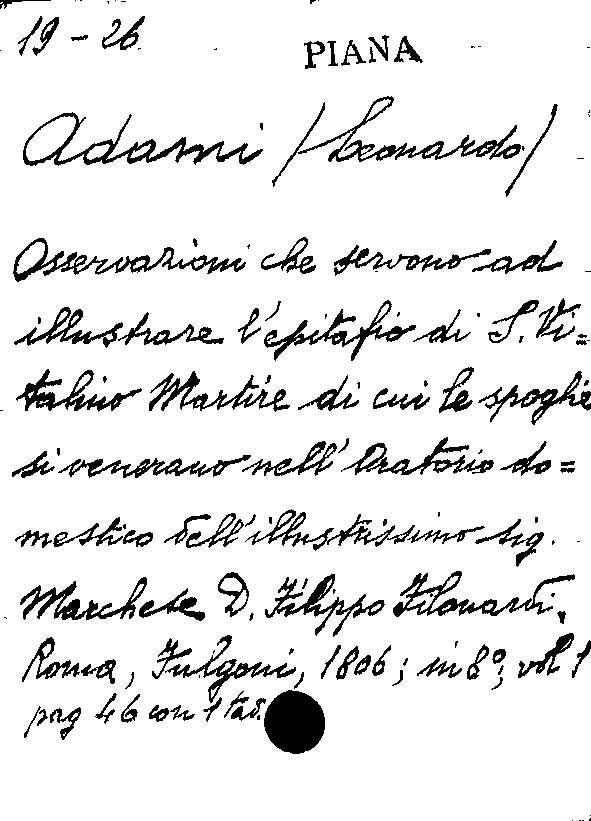 19-26
PIANA
Adami (Leonardo)
Osservazioni che servono ad
illustrare l'epitafio di S. Vi=
talino Martire di cui le spoglie
si venerano nell' Oratorio do=
mestico dell'illustrissimo sig.
Marchese D. Filippo Filonardi,
Roma, Fulgoni, 1806; in 8º; vol 1
pag 46 con 1 tav.